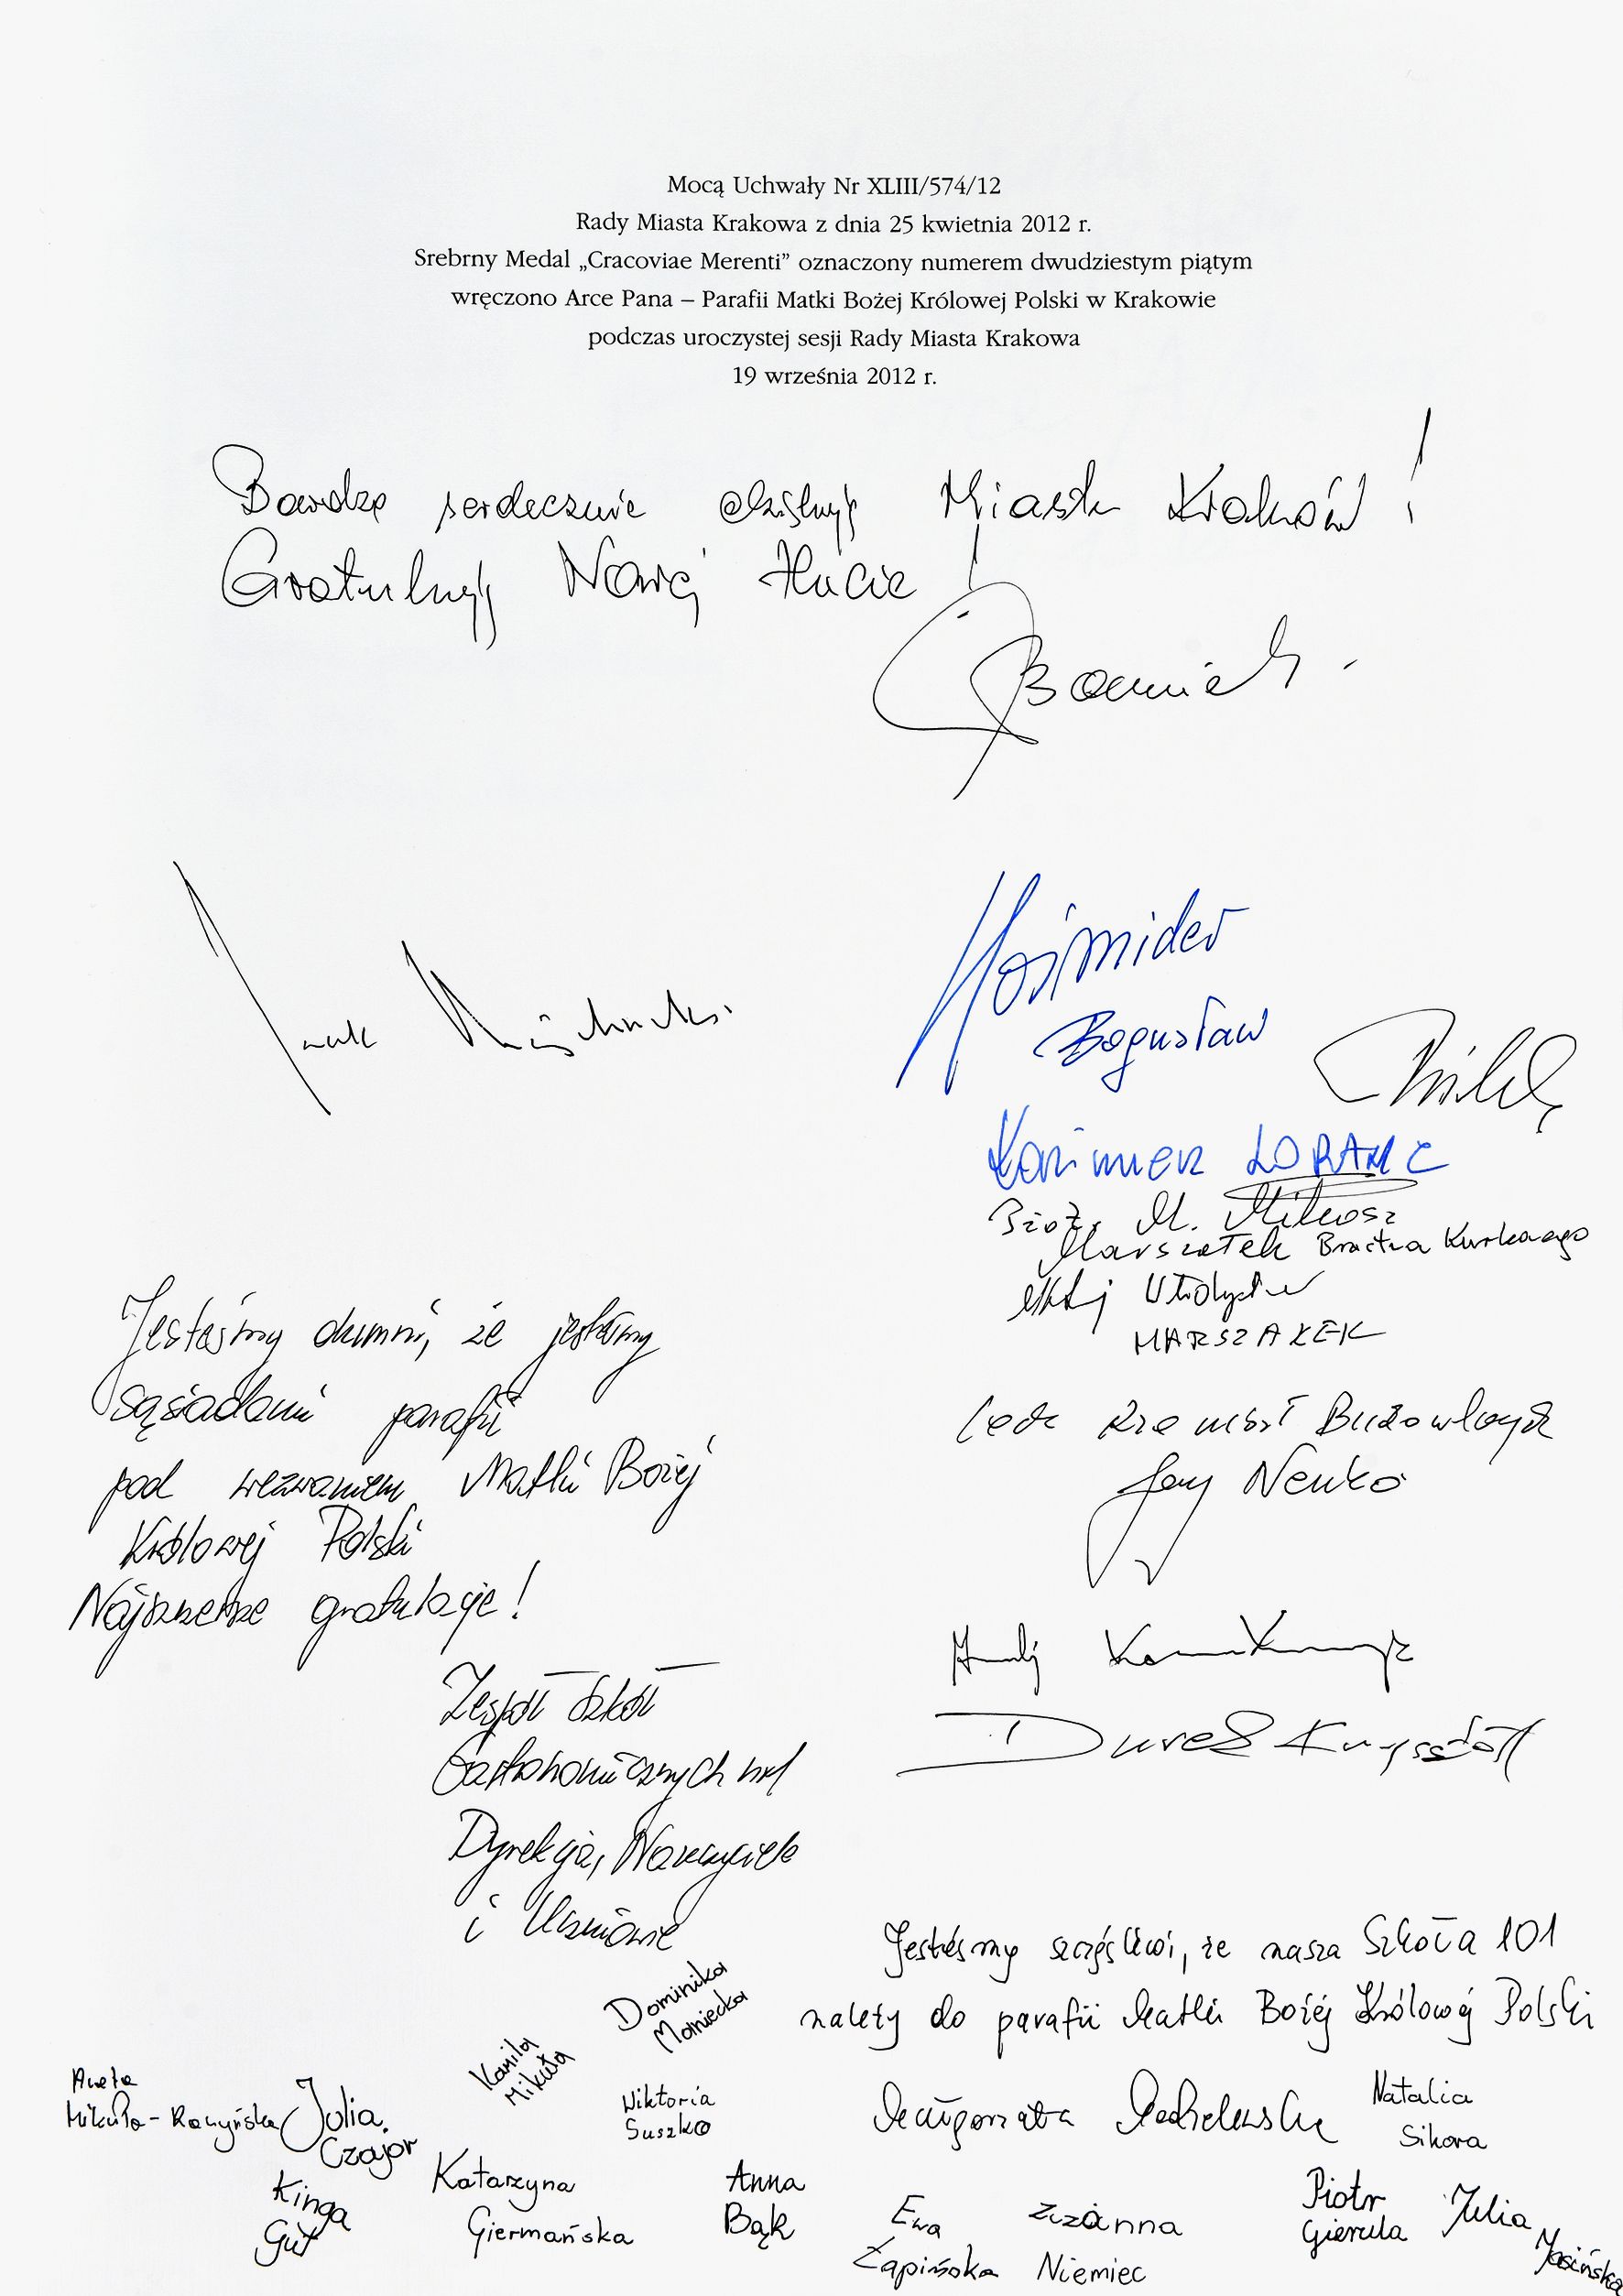 Mocą Uchwały Nr XLIII/574/12
Rady Miasta Krakowa z dnia 25 kwietnia 2012 r.
Srebrny Medal „Cracoviae Merenti” oznaczony numerem dwudziestym piątym
wręczono Arce Pana – Parafii Matki Bożej Królowej Polski w Krakowie
podczas uroczystej sesji Rady Miasta Krakowa
19 września 2012 r.
Bardzo serdecznie dziękuję Miastu Kraków!
Gratuluję Nowej Hucie!
Kośmider
Bogusław
Kazimierz LORANC
Broz. M. Mikosz
Marszałek Bractwa Kurkowego
MARSZAŁEK
Cech Rzemiosł Budowlanych
Jerzy Nenko
Dureł Krzysztof
Jesteśmy dumni, że jesteśmy
sąsiadami parafii
pod wezwaniem Matki Bożej
Królowej Polski
Najszczersze gratulacje!
Zespół Szkół
Gastronomicznych nr 1
Dyrekcja, Nauczyciele
i Uczniowie
Jesteśmy szczęśliwi, że nasza Szkoła 101
należy do parafii Matki Bożej Królowej Polski
Dominika
Maniecka
Kamila
Mikuła
Aneta
Mikuła-Raczyńska
Julia
Czajor
Wiktoria
Suszko
Małgorzata
Natalia
Sikora
Kinga
Gut
Katarzyna
Giermańska
Anna
Bąk
Ewa
Łapińska
Zuzanna
Niemiec
Piotr
Gierula
Julia
Jasińska